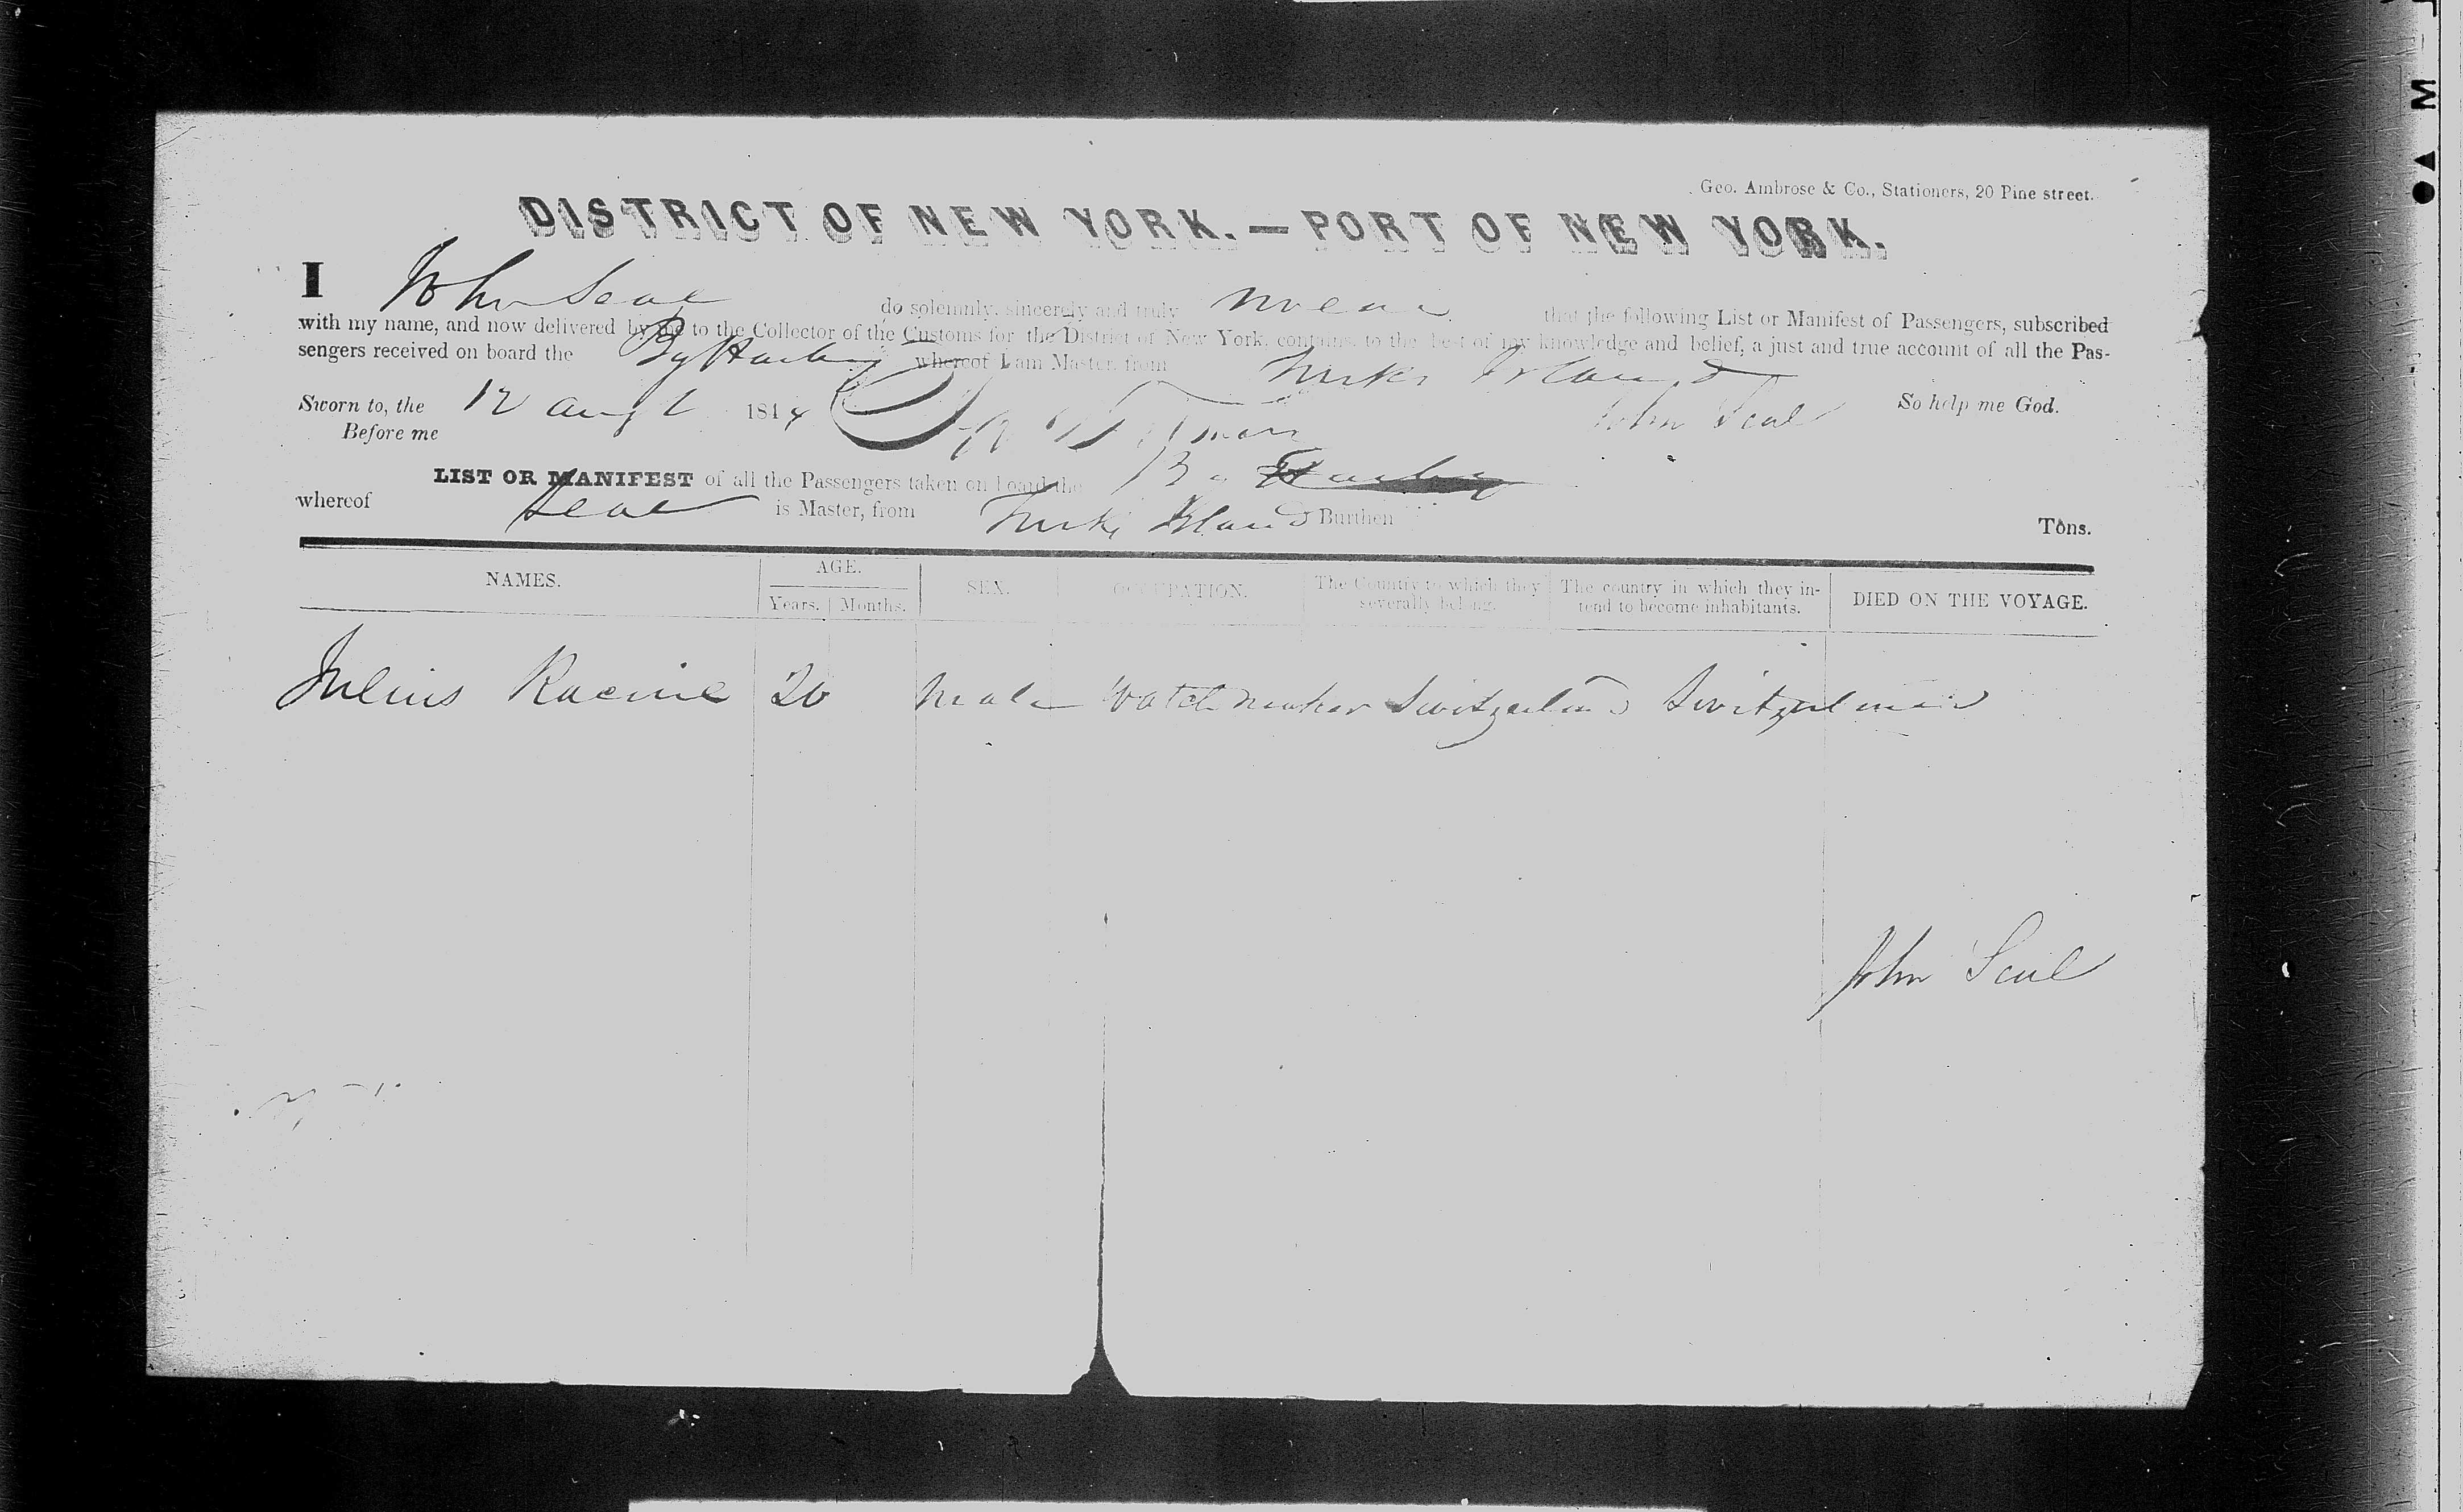 Geo. Ambrose & Co., Stationers, 20 Pine street.
DISTRICT OF NEW YORK.—PORT OF NEW YORK.
I John Seal do solemnly, sincerely and truly swear that the following List or Manifest of Passengers, subscribed
with my name, and now delivered by me to the Collector of the Customs for the District of New York, contains, to the best of my knowledge and belief, a just and true account of all the Pas-
sengers received on board the whereof I am Master, from Turks Island
Sworn to, the 12 Augt 1844 John Seal So help me God.
Before me
LIST OR MANIFEST of all the Passengers taken on board the
whereof Seal is Master, from Turks Island Burthen Tons.
NAMES. AGE. SEX. OCCUPATION. The Country to which they severally belong. The country in which they in-tend to become inhabitants. DIED ON THE VOYAGE.
Years. Months.
Julius Racine 20 Male Watch maker Switzerland Switzerland
John Seal